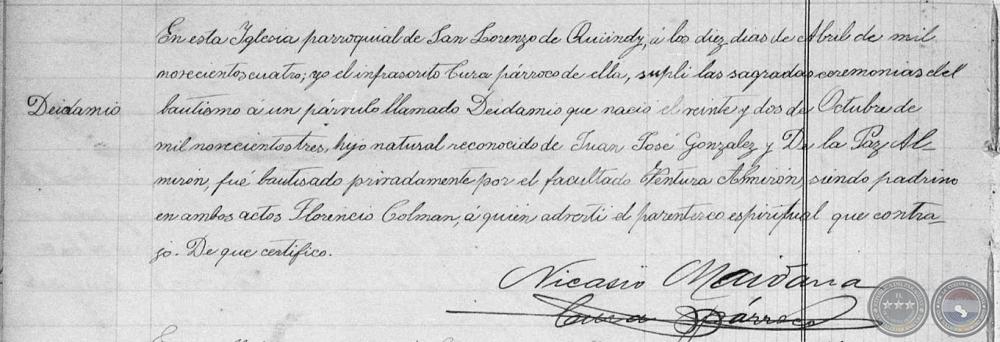 En esta Iglesia parroquial de San Lorenzo de Quiindy, á los diez dias de Abril de mil
novecientos cuatro; yo el infrascrito Cura párroco de ella, supli las sagradas ceremonias del
Deidamio
bautismo á un párvulo llamado Deidamio que nació el veinte y dos de Octubre de
mil novecientos tres, hijo natural reconocido de Juan José Gonzalez y De la Paz Al-
mirón, fué bautisado privadamente por el facultado Ventura Almirón, siendo padrino
en ambos actos Florencio Colman, á quien adverti el parentesco espiritual que contra-
jo. De que certifico.
Nicasio Maidana
Cura Párroco